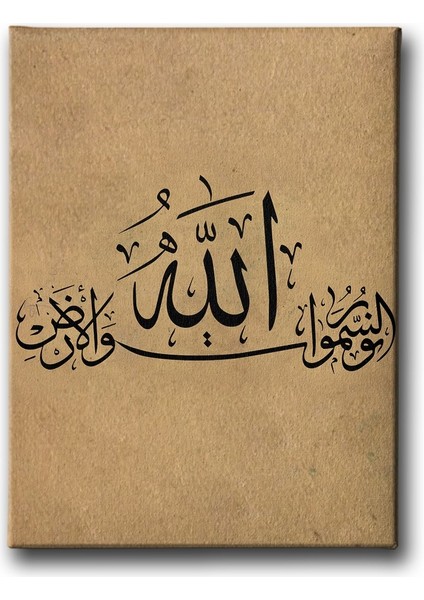 اللهُ نُورُ السَّمٰوَاتِ وَالْأَرْضِ